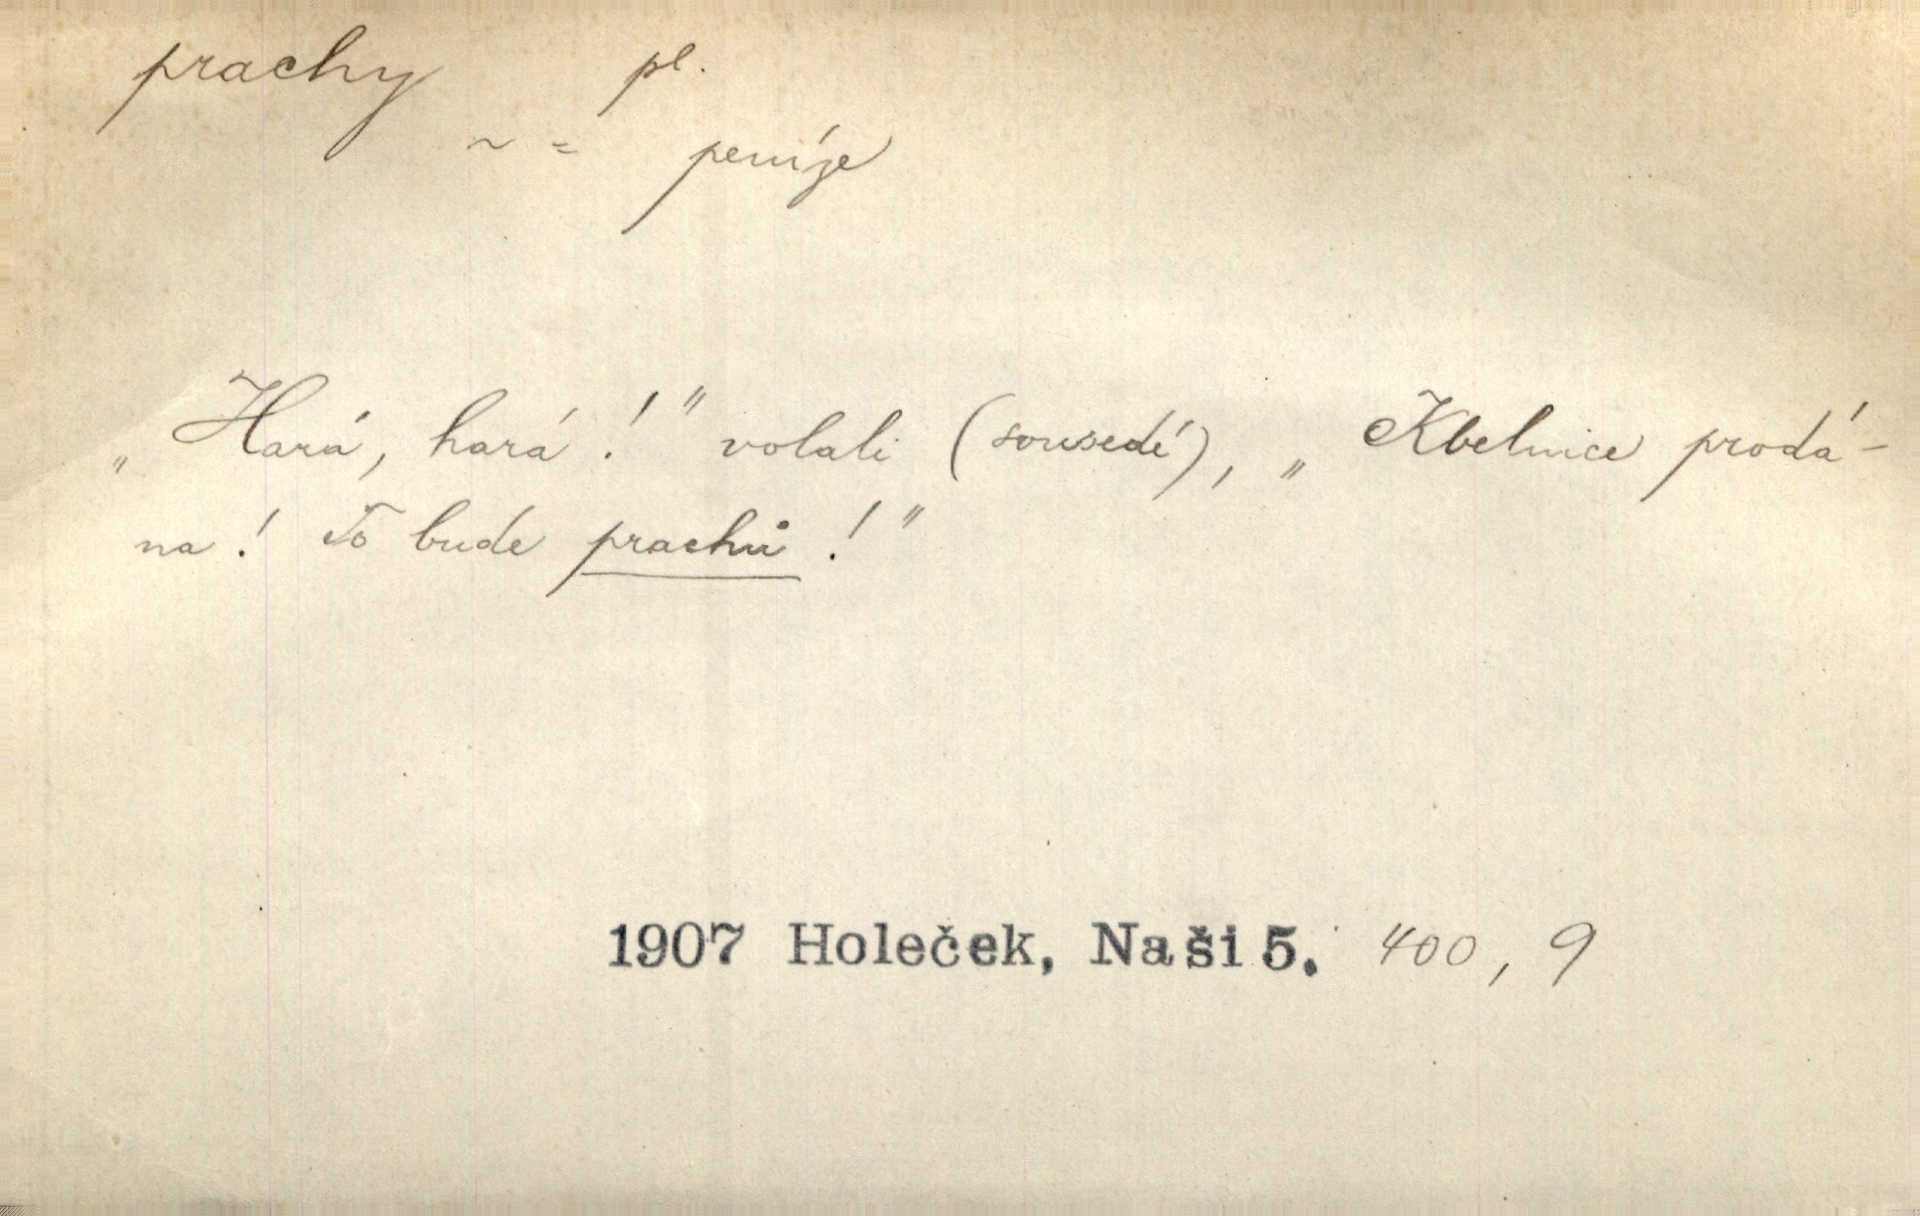 prachy pl.
~ = peníze
„Hará, hará!" volali (sousedé), „Kbelnice prodá-
na! To bude prachů!"
1907 Holeček, Naši 5. 400, 9